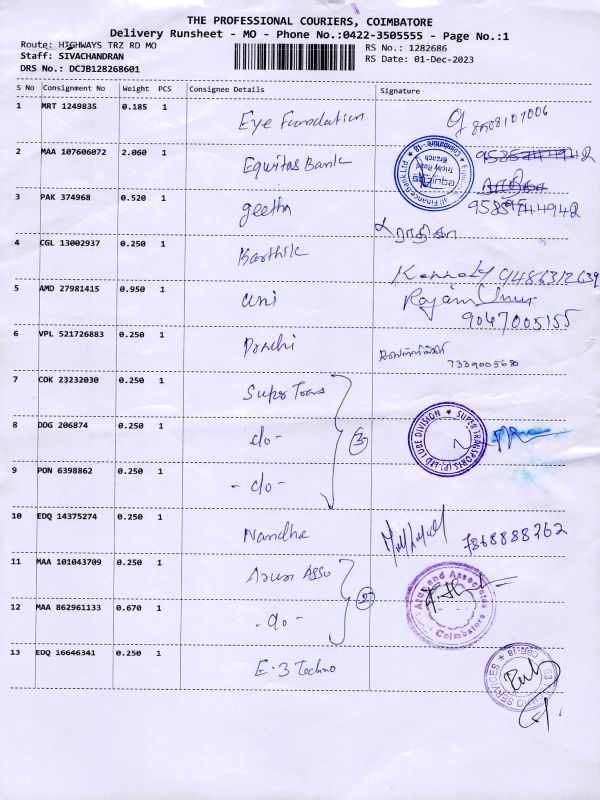 THE PROFESSIONAL COURIERS, COIMBATORE
Delivery Runsheet - MO - Phone No.:0422-3505555 - Page No.:1
Route: HIGHWAYS TRZ RD MO
RS No.: 1282686
Staff: SIVACHANDRAN
RS Date: 01-Dec-2023
DRS No.: DCJB128268601
S No Consignment No Weight PCS Consignee Details Signature
1 MRT 1249835 0.185 1 Eye Foundation 8508107006
2 MAA 107606072 2.060 1 Equitas Bank
3 PAK 374968 0.520 1 geetha 9585944942
4 CGL 13002937 0.250 1 Karthik
5 AMD 27981415 0.950 1 Uni 9047005155
6 VPL 521726883 0.250 1 Prachi 7339005680
7 COK 23232030 0.250 1 Super Trans
8 DDG 206874 0.250 1 do - 3
SUPER TRANSPORTS (P) LTD LUBE DIVISION
9 PON 6398862 0.250 1 - do -
10 EDQ 14375274 0.250 1 Nandha 7868888262
11 MAA 101043709 0.250 1 Arun Asso
Arun and Associates Coimbatore
12 MAA 862961133 0.670 1 - do -
13 EDQ 16646341 0.250 1 E-3 Techno
E3 TECHNO SERVICES CBE-18